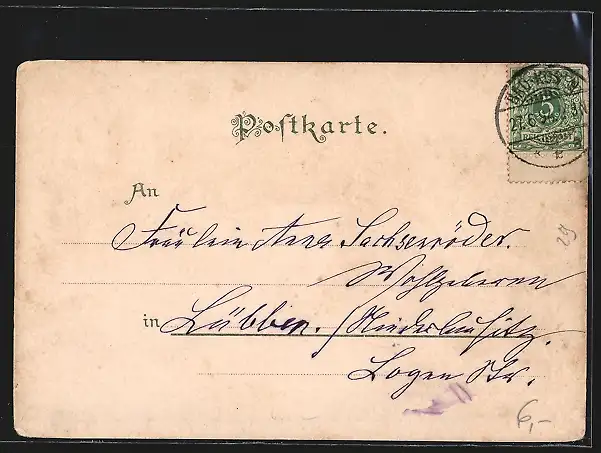 Postkarte.
5
REICHSPOST
An
Fräulein Anna Sachsenröder.
Wohlgeboren
in Lübben. (Niederlausitz.
Logen Str.
29
6,-